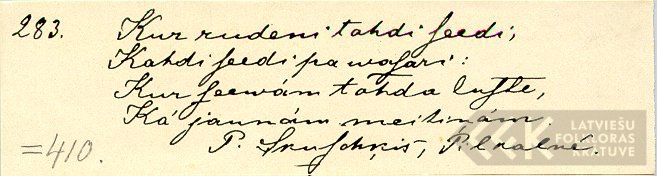 283. Kur rudeni tahdi seedi,
Kahdi seedi pa wasari:
Kur seewám tahda luste,
Ká jaunám meitinám.
=410. P. Skuschkis, Pilkalné.
LATVIEŠU
FOLKLORAS
KRĀTUVE